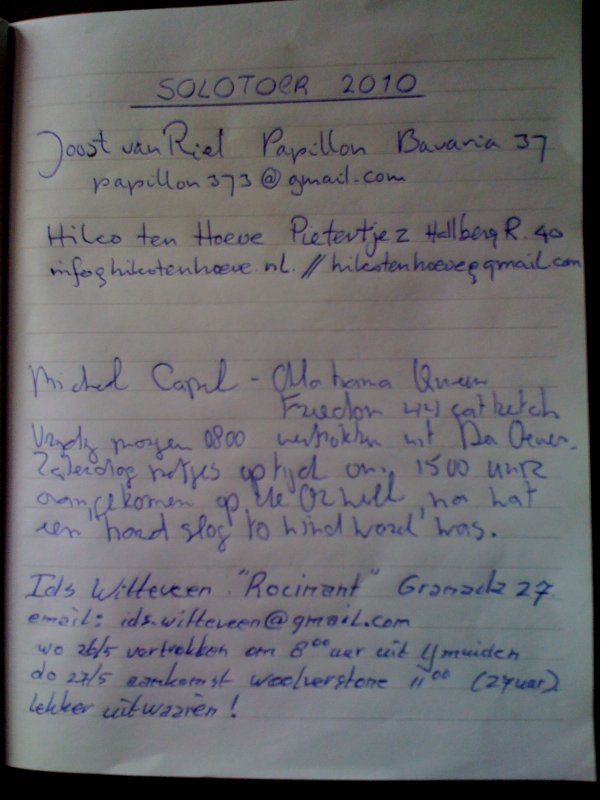 SOLOTOER 2010
Joost van Riel Papillon Bavaria 37
papillon373@gmail.com
Hilco ten Hoeve Pietertje 2 Hallberg R. 40
info@hilcotenhoeve.nl. // hilcotenhoeve@gmail.com
Michel Capel - Queen
Freedom 44 cat ketch
morgen 0800 vertrokken uit Den Oever.
Zaterdag netjes op tijd om 1500 uur
aangekomen op de Orwell, na wat
een hard slog to windward was.
Ids Witteveen "Rocinant" Granada 27
email: ids.witteveen@gmail.com
wo 26/5 vertrokken om 8⁰⁰ uur uit Ymuiden
do 27/5 aankomst woolverstone 11⁰⁰ (27uur)
lekker uitwaaien!